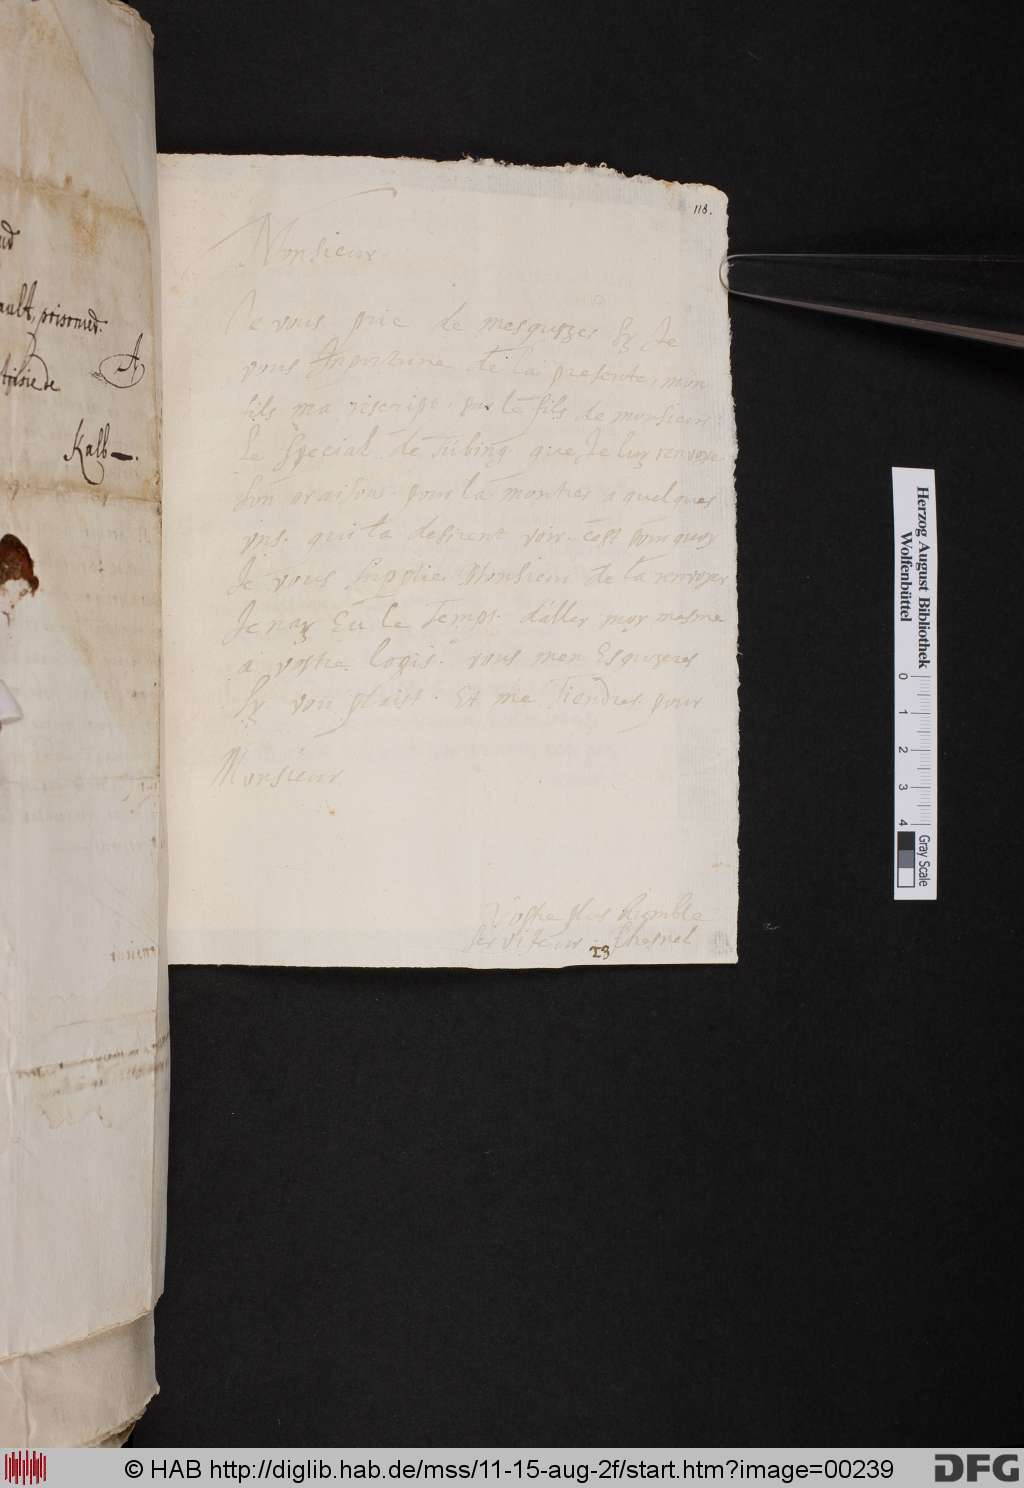 118.
Monsieur
Je vous prie de mesquzes sy Je
vous Inportune de la presente, mon
fils ma rescript. par le fils de monsieur
le special de Tübing que Je luy renvoye
son oraisons pour la montres a quelques
vns. qui la desirent voir. cest pourquoy
Je vous supplie Monsieur de la renvoyer
Je nay Eu le Temps. daller moy mesme
a vostre. logis. vous men Esquzeres
sy vou plaist. Et me Tiendres pour
Monsieur
Vostre plus humble
serviteur Chesnel
23
ault, prisonied.
Kalb
Herzog August Bibliothek
Wolfenbüttel
0 1 2 3 4
Gray Scale
© HAB http://diglib.hab.de/mss/11-15-aug-2f/start.htm?image=00239
DFG